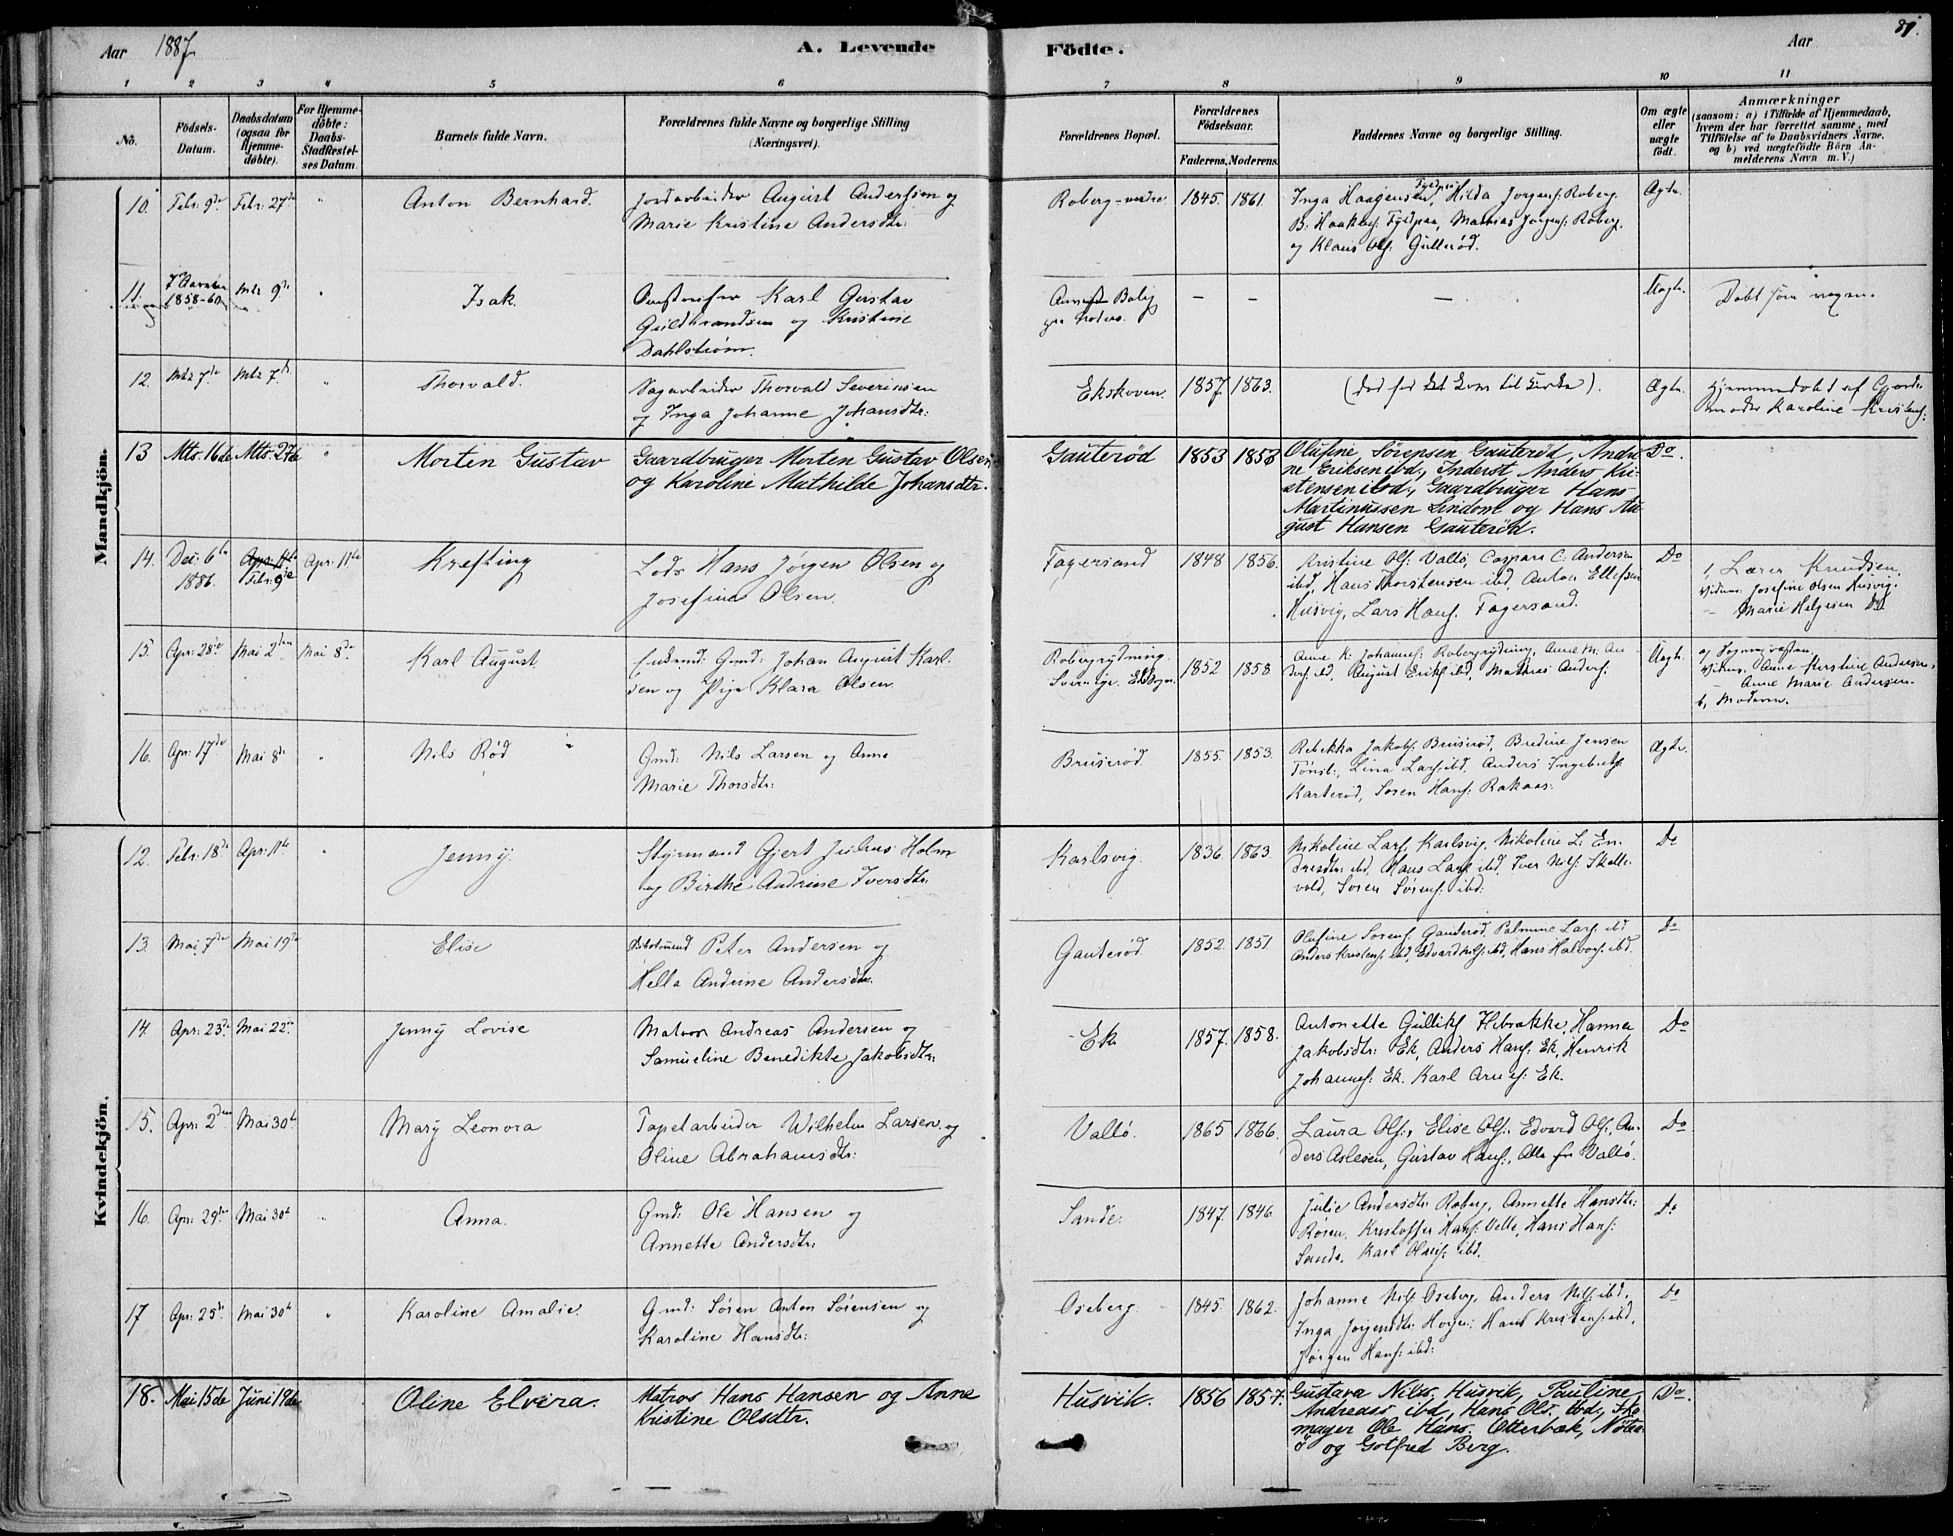 Aar 1887
A. Levende Födte.
Aar
89.
1 2 3 4 5 6 7 8 9 10 11
No.
Födsels-Datum.
Daabsdatum (ogsaa for Hjemme-döbte).
For Hjemme-döbte: Daabs-Stadfæstel-ses Datum.
Barnets fulde Navn.
Forældrenes fulde Navne og borgerlige Stilling (Næringsvei).
Forældrenes Bopæl.
Forældrenes Födselsaar.
Faderens. Moderens.
Faddernes Navne og borgerlige Stilling.
Om ægte eller uægte födt.
Anmærkninger
(saasom: a) i Tilfælde af Hjemmedaab,
hvem der har forrettet samme, med
Tilföielse af to Daabsvidners Navne,
og b) ved uægtefödte Börn An-
melderens Navn m. V.)
Mandkjön.
10. Febr: 9de Febr: 27de " Anton Bernhard. Jordarbeider August Andersen og
Marie Kristine Andersdtr:
Roberg - nedre 1845. 1861. Inga Haagensen, Hilda Jörgens: Roberg.
Mathias Jörgens: Roberg,
og Klaus Ols: Gullerød. Ægte.
11. 1858-60 Mts 9de " Isak. Karl Gustav
Guldbrandsen og Kristine
Dahlstrøm.
— — — Uægte. Døbt som voxen.
12. Mts 7de Mts 7de " Thorvald. Sagarbeider Thorvald Severinsen
og Inga Johanne Johansdtr:
Ekskoven. 1857. 1863. (død før det kom til Kirke). Ægte. Hjemmedøbt af Gjorde-
moder Karoline Kristens:
13 Mts. 16de Mts. 27de " Morten Gustav Gaardbruger Morten Gustav Olsen
og Karoline Mathilde Johansdtr.
Gauterød 1853 1858 Olufine Sörensen Gauterød, Andri-
ne Eriksen ibd., Inderst Anders Kri-
stensen ibd., Gaardbruger Hans
Martinussen Lindom og Hans Au-
gust Hansen Gauterød. Do.
14. Dec: 6te 1886. Febr: 9de Apr: 11te Krefting Lods Hans Jørgen Olsen og
Josefine Olsen.
Fagersand 1848 1856. Kristine Ols: Vallø, Caspara C. Andersen
ibd, Hans Thorstensen ibd, Anton Ellefsen
Husvig, Lars Hans: Fagersand. Do
1, Lærer Knudsen,
Vidner: Josefine Olsen Husvig.
— Marie Helgesen Do
15. Apr: 28de Mai 2den Mai 8de Karl August Gmd: Johan August Karl-
sen og Pige Klara Olsen
Robergrydning. 1852 1858 Anne K. Johannes: Robergrydning, Anne M. An-
ders: ibd, August Eriks: ibd, Mathias Anders:
Uægte.
Vidner: Anne Kirstine Andersen,
Anne Marie Andersen.
b, Moderen.
16. Apr: 17de Mai 8de " Nils Rød Gmd: Nils Larsen og Anne
Marie Thorsdtr:
Bruserød. 1855. 1853. Rebekka Jakobs: Bruserød, Bredine Jensen
Tønsb:, Lina Lars: ibd, Anders Ingebrets:
Karterød, Søren Hans: Rakaas: Ægte.
Kvindekjön.
12. Febr: 18de Apr: 11te " Jenny. Styrmand Gjert Julius Holm
og Birthe Andrine Iversdtr:
Karlsvig. 1836. 1863. Nikoline Lars: Karlsvig, Nikoline L: En-
dresdtr: ibd, Hans Lars: ibd, Iver Nils: Skalle-
vold, Søren Sørens: ibd: Do
13. Mai 7de Mai 19de Elise Peter Andersen og
Hella Andrine Andersdtr.
Gauterød. 1852. 1851. Olufine Sørens: Gauterød, Palmine Lars: ibd
Anders Kristens: ibd, Edvard Nils: ibd, Hans Halvors: ibd. Do
14. Apr: 23de Mai 22de Jenny Lovise Matros Andreas Andersen og
Samueline Benedikte Jakobsdtr:
Ek. 1857. 1858. Antonette Gulliks: Hebrække, Hanna
Jakobsdtr: Ek, Anders Hans: Ek, Henrik
Johannes: Ek. Karl Arnes: Ek. Do
15. Apr: 2den Mai 30te Mary Leonora Tapetarbeider Wilhelm Larsen og
Oline Abrahamsdtr:
Vallø. 1865 1866. Laura Ols:, Elise Ols:, Edvard Ols:, An-
ders Aslesen, Gustav Hans:, Alle fra Vallø. Do
16. Apr: 29de Mai 30te " Anna. Gmd: Ole Hansen og
Annette Andersdtr:
Sande. 1847. 1846. Julie Andersdtr: Roberg, Annette Hansdtr:
Røren, Kristoffer Hans: Velle, Hans Hans:
Sande, Karl Olsen: ibd. Do
17 Apr: 25de Mai 30te " Karoline Amalie. Gmd: Søren Anton Sørensen og
Karoline Hansdtr:
Oseberg. 1845. 1862. Johanne Nils: Oseberg, Anders Nils: ibd,
Inga Jørgensdtr: Hogen: Hans Kristens: ibd,
Jørgen Hans: ibd: Do
18. Mai 15de Juni 19de Oline Elvira. Matros Hans Hansen og Anne
Kristine Olsdtr.
Husvik. 1856 1857. Gustava Nilss. Husvik, Pauline
Andreass ibd, Hans Ols. ibd., Sko-
mager Ole Hans. Otterbæk, Nöter-
ö og Gotfred Berg. Do.